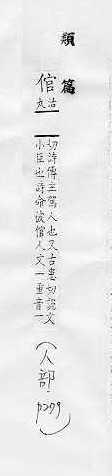 類篇
倌 沽
丸
切詩傳主駕人也又古患切說文
小臣也詩命彼倌人文一重音一
(人部.